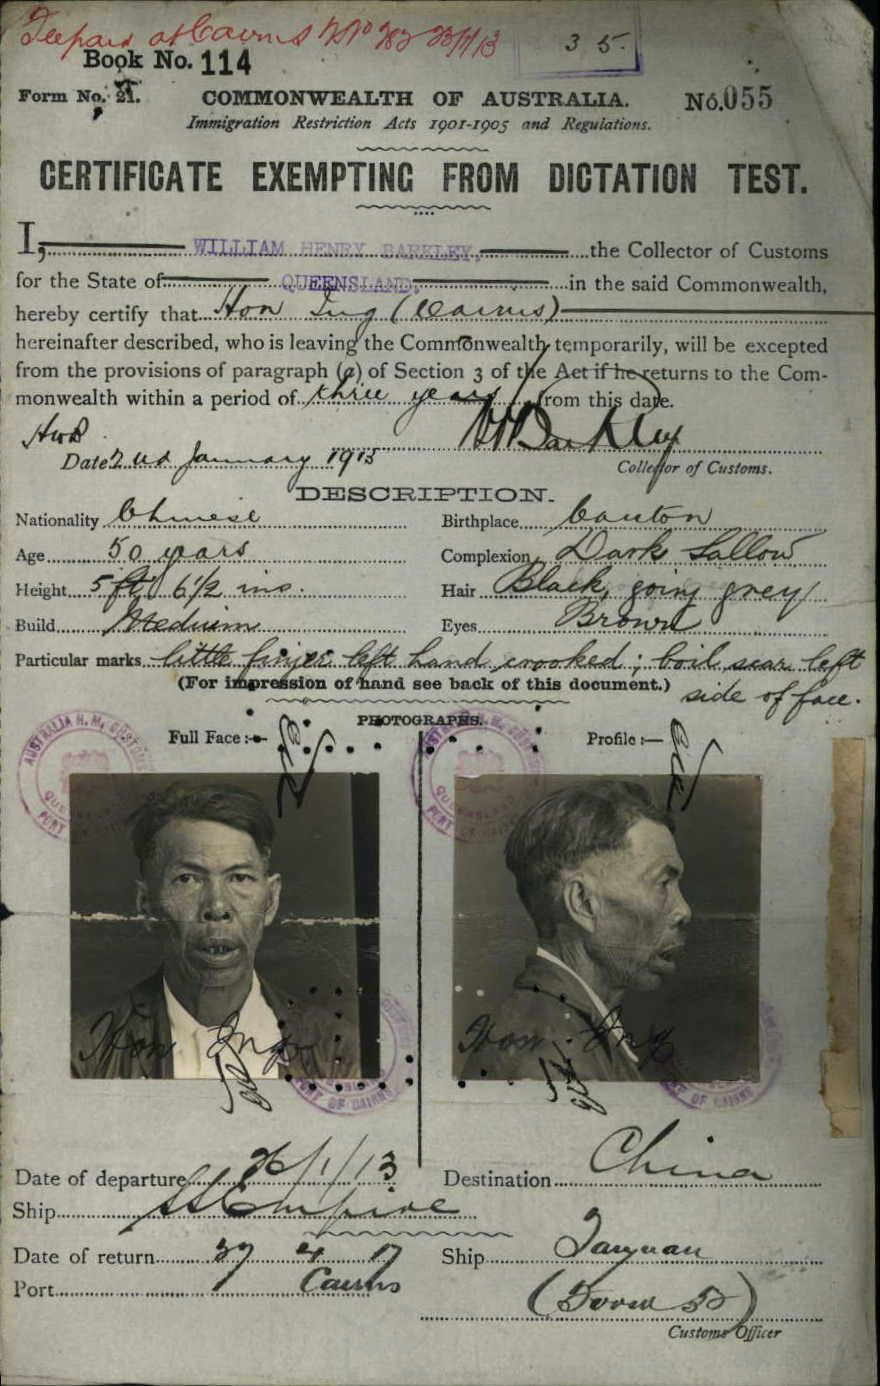 at Cairns No 23/1/13
35.
Book No. 114
Form No. 21.
COMMONWEALTH OF AUSTRALIA.
No. 055
Immigration Restriction Acts 1901-1905 and Regulations.
CERTIFICATE EXEMPTING FROM DICTATION TEST.
I, WILLIAM HENRY BARKLEY, the Collector of Customs
for the State of QUEENSLAND, in the said Commonwealth,
hereby certify that Hon Ing (Cairns)
hereinafter described, who is leaving the Commonwealth temporarily, will be excepted
from the provisions of paragraph (a) of Section 3 of the Act if he returns to the Com-
monwealth within a period of three years from this date.
WHBarkley
Date 2nd January 1913
Collector of Customs.
DESCRIPTION.
Nationality Chinese
Birthplace Canton
Age 50 years
Complexion Dark Sallow
Height 5 ft 6 1/2 ins.
Hair Black, going grey
Build Medium
Eyes Brown
Particular marks little finger left hand crooked; boil scar left
side of face.
(For impression of hand see back of this document.)
PHOTOGRAPHS.
Full Face:—
Profile:—
AUSTRALIA H.M. CUSTOMS
QUEENSLAND
PORT OF CAIRNS
AUSTRALIA H.M. CUSTOMS
QUEENSLAND
PORT OF CAIRNS
Hon Ing
Hon Ing
PORT OF CAIRNS
PORT OF CAIRNS
Date of departure 26/1/13
Destination China
Ship SS Empire
Date of return 4 17
Ship Taiyuan
Port Cairns
Customs Officer